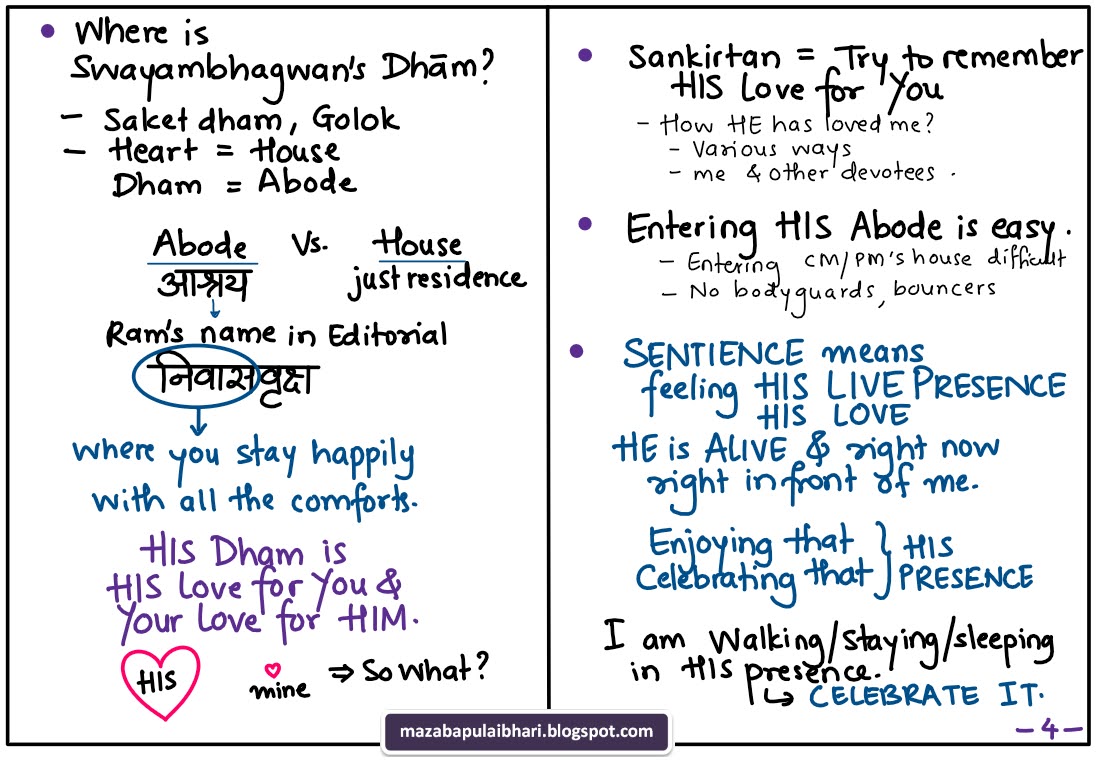 • Where is
Swayambhagwan's Dhām?
- Saket dham, Golok
- Heart = House
Dham = Abode
Abode Vs. House
आश्रय just residence
Ram's name in Editorial
निवासवृक्ष
where you stay happily
with all the comforts.
HIS Dham is
HIS Love for You &
Your Love for HIM.
HIS mine ⇒ So What?
• Sankirtan = Try to remember
HIS Love for You
- How HE has loved me?
- Various ways
- me & other devotees.
• Entering HIS Abode is easy.
- Entering CM/PM's house difficult
- No bodyguards, bouncers
• SENTIENCE means
feeling HIS LIVE PRESENCE
HIS LOVE
HE is ALIVE & right now
right in front of me.
Enjoying that } HIS
Celebrating that } PRESENCE
I am Walking/staying/sleeping
in HIS presence.
↳ CELEBRATE IT.
-4-
mazabapulaibhari.blogspot.com